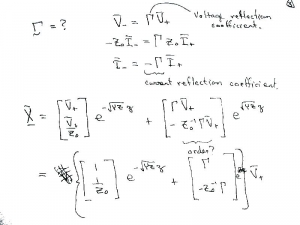 Γ = ? V̄₋ = Γ V̄₊ Voltage reflection coefficient.
-Z₀ Ī₋ = Γ Z₀ Ī₊
Ī₋ = -Γ Ī₊
current reflection coefficient.
X̄ = [V̄₊ ; V̄₊/Z₀] e^(-√YZ z) + [Γ V̄₊ ; -Z₀⁻¹ Γ V̄₊] e^(√YZ z)
order?
= { [1 ; 1/Z₀] e^(-√YZ z) + [Γ ; -Z₀⁻¹ Γ] } V̄₊